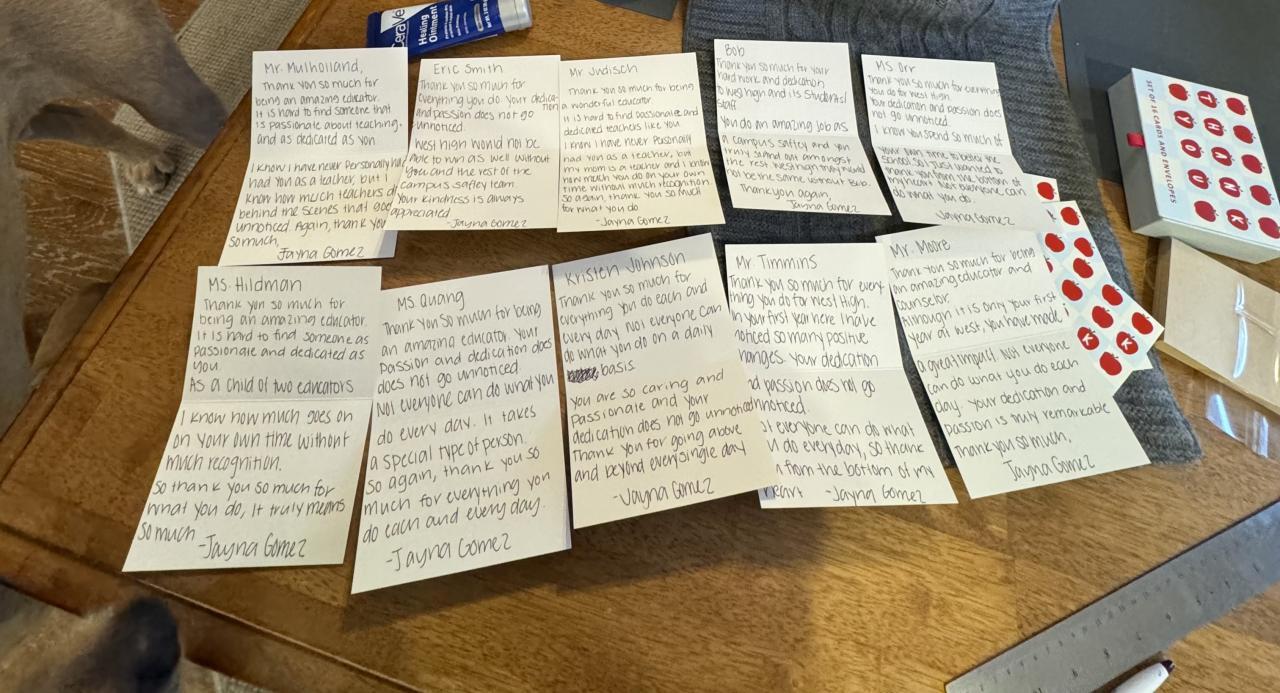 CeraVe
Healing
Ointment
Mr. Mulholland,
Thank you so much for
being an amazing educator.
It is hard to find someone that
is passionate about teaching.
and as dedicated as you
I know I have never personally
had you as a teacher, but I
know how much teachers
behind the scenes that goes
unnoticed. Again, thank you
so much,
Jayna Gomez
Eric Smith
Thank you so much for
everything you do. Your dedication
and passion does not go
unnoticed.
West high would not be
Able to run as well without
you and the rest of the
campus safley team.
Your kindness is always
appreciated
-Jayna Gomez
Mr. Judisch
Thank you so much for being
a wonderful educator.
It is hard to find passionate and
dedicated teachers like you
I know I have never Personally
had you as a teacher, but
my mom is a teacher and I know
how much you do on your own
time without much recognition.
so again, thank you so much
for what you do
-Jayna Gomez
Bob
Thank you so much for your
hard work and dedication
to west high and its students/
staff
You do an amazing job as
a campus saftey and you
truly stand out amongst
the rest. West high truly would
not be the same without Bob.
Thank you again,
Jayna Gomez
Ms Orr
Thank you so much for everything
you do for West High.
Your dedication and passion does
not go unnoticed
I know you spend so much of
your own time to better the
school so I just wanted to
thank you from the bottom of
my heart. Not everyone can
do what you do.
Jayna Gomez
Ms. Hildman
Thank you so much for
being an amazing educator.
It is hard to find someone as
passionate and dedicated as
you.
As a child of two educators
I know how much goes on
on your own time without
much recognition.
So thank you so much for
what you do, it truly means
so much
-Jayna Gomez
Ms. Quang
Thank you so much for being
an amazing educator your
passion and dedication does
does not go unnoticed
Not everyone can do what you
do every day. It takes
a special type of person.
so again, thank you so
much for everything you
do each and every day.
-Jayna Gomez
Kristen Johnson
Thank you so much for
everything you do each and
every day. Not everyone can
do what you do on a daily
basis.
you are so caring and
passionate and your
dedication does not go unnoticed
Thank you for going above
and beyond every single day
-Jayna Gomez
Mr. Timmins
Thank you so much for every-
thing you do for West High.
In your first year here I have
noticed so many positive
changes. Your dedication
and passion does not go
unnoticed.
everyone can do what
do everyday, so thank
from the bottom of my
heart -Jayna Gomez
Mr. Moore
Thank you so much for being
an amazing educator and
counselor.
Although it is only your first
year at west you have made
a great impact. Not everyone
can do what you do each
day. Your dedication and
passion is truly remarkable
Thank you so much,
Jayna Gomez
SET OF 36 CARDS AND ENVELOPES
THANK
YOU
K
K